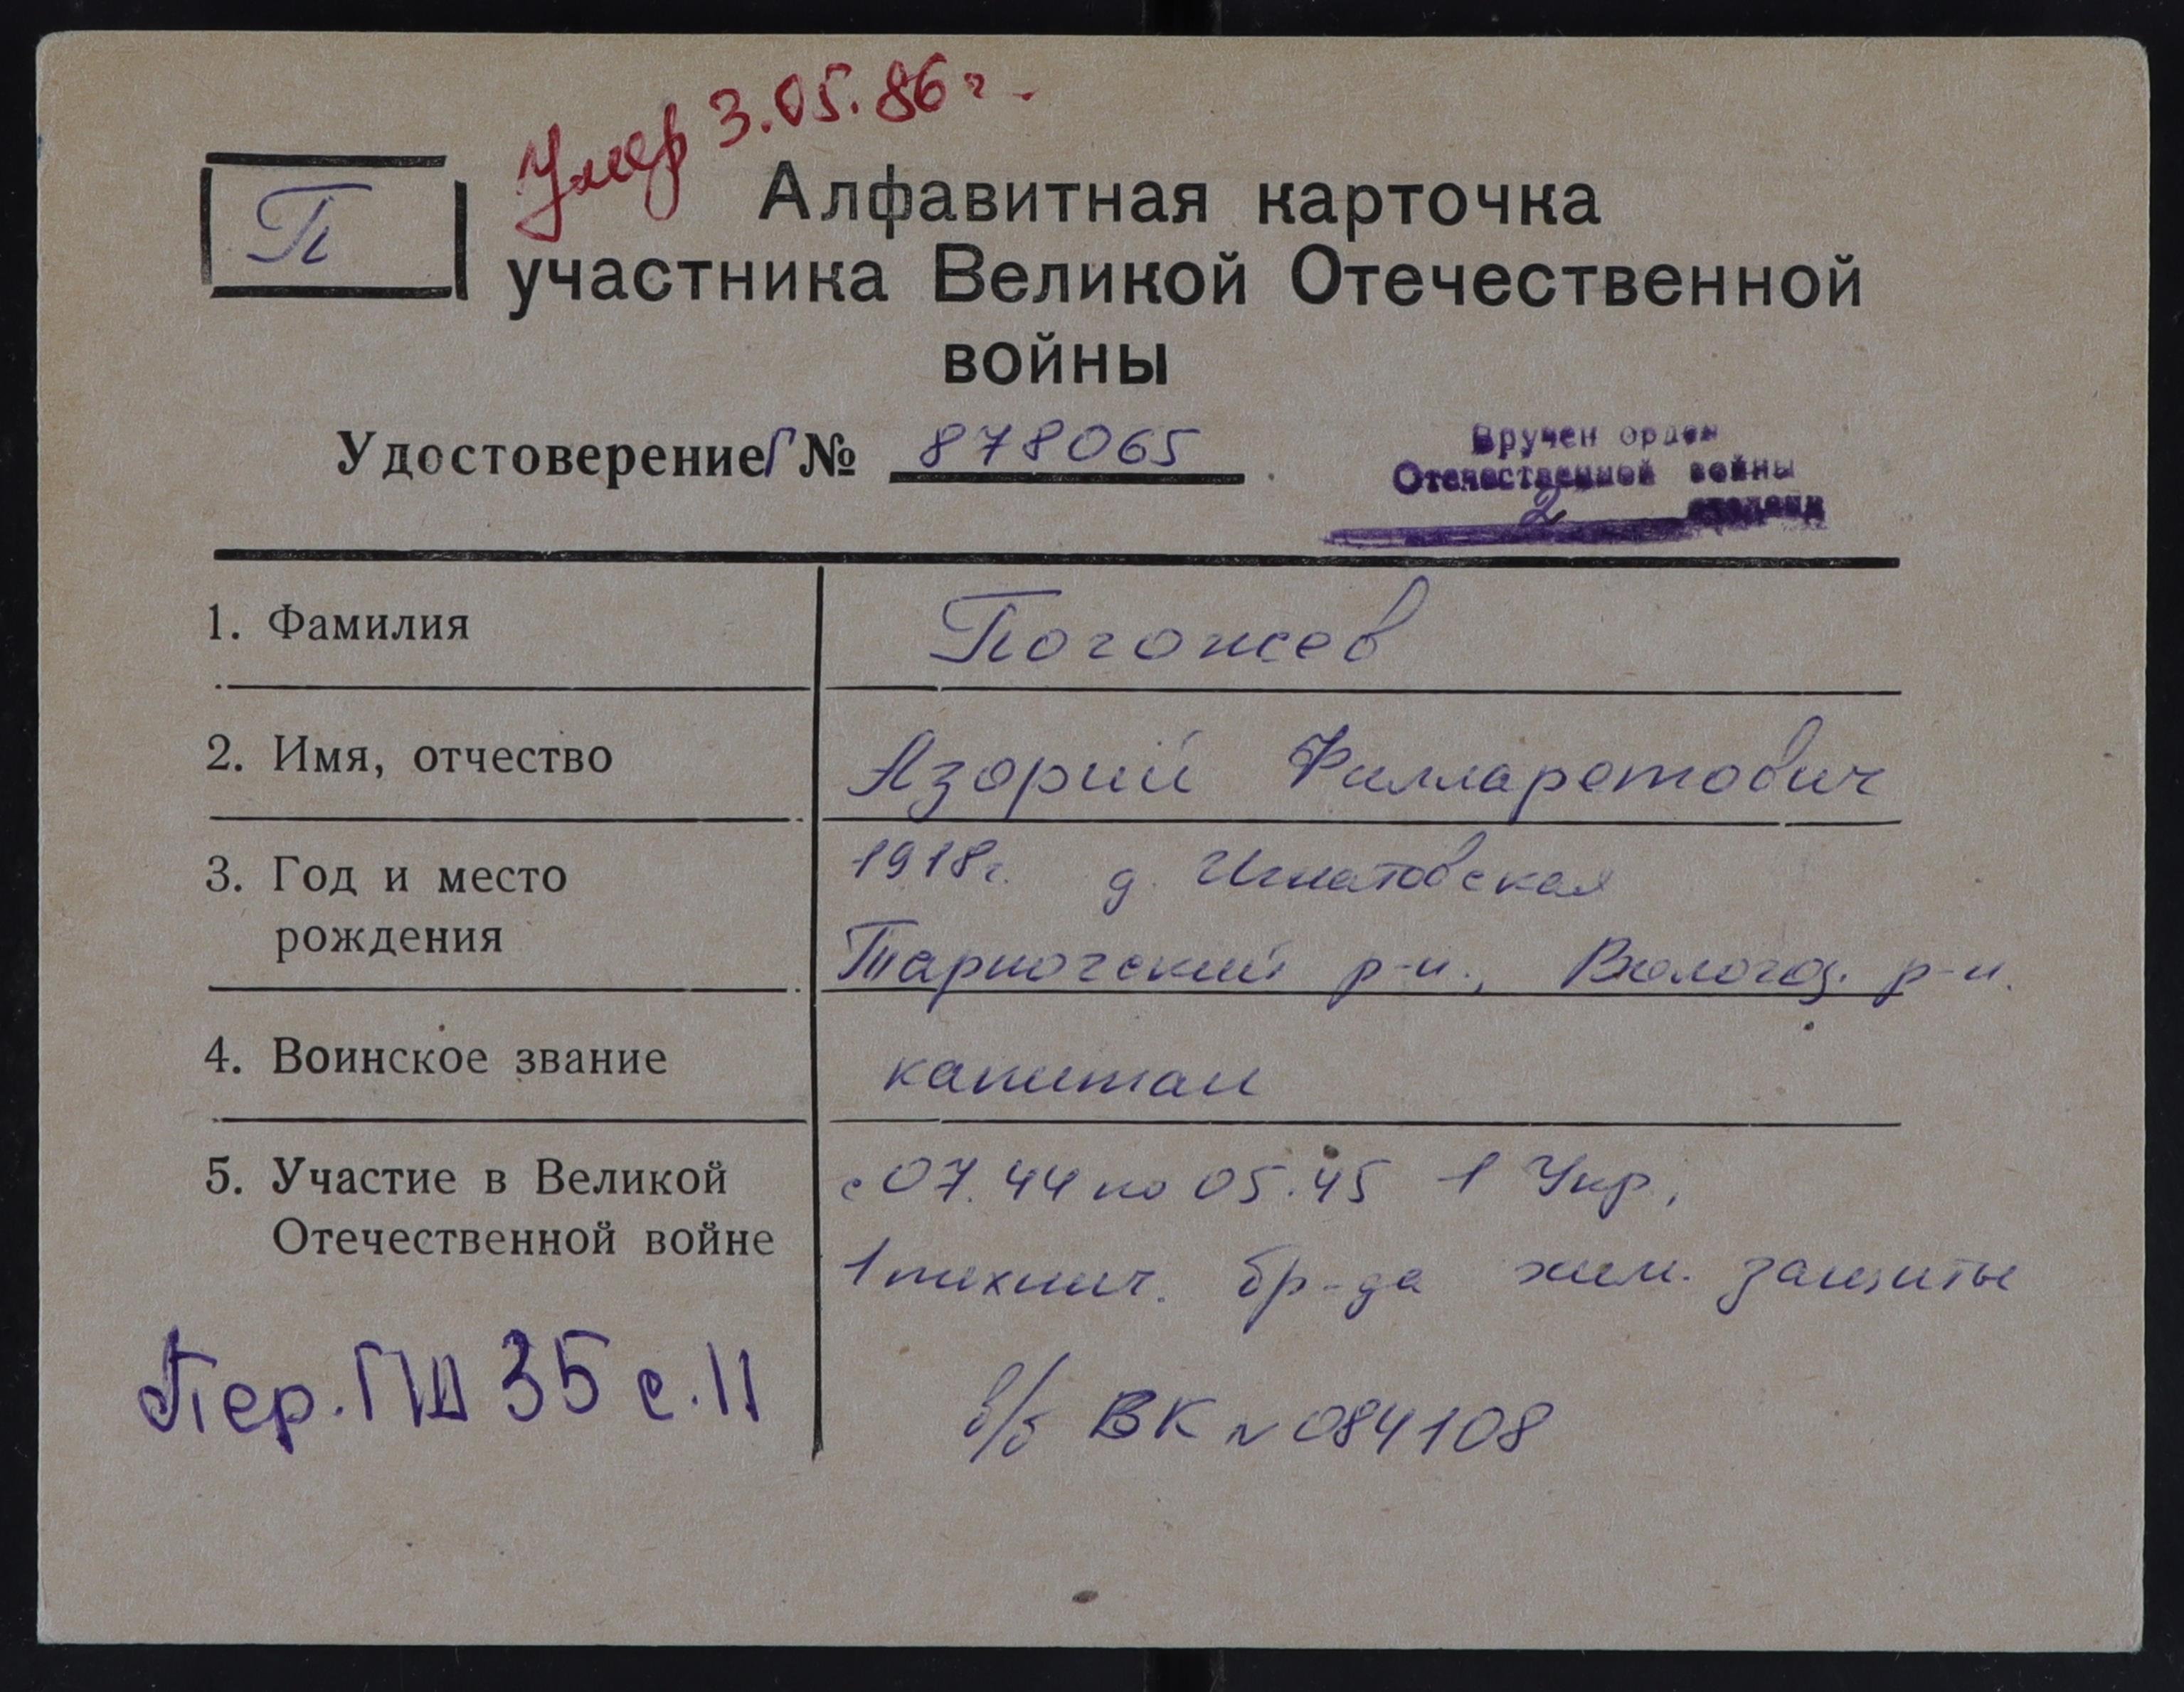 Умер 3.05.86 г.
П
Алфавитная карточка
участника Великой Отечественной
войны
Удостоверение Г № 878065
Вручен орден
Отечественной войны
2 степени
1. Фамилия
Погожев
2. Имя, отчество
Азорий Филларетович
3. Год и место
рождения
1918г. д. Игнатовская
Тарногский р-н., Вологод. р-н.
4. Воинское звание
капитан
5. Участие в Великой
Отечественной войне
с 07.44 по 05.45 1 Укр.
1 технич. бр-да хим. защиты
Пер. ГШ 35 с. 11
в/б ВК № 084108